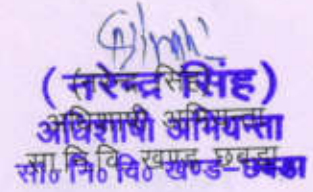 (नरेन्द्र सिंह)
अधिशाषी अभियन्ता
सा० नि० वि० खण्ड-छबडा